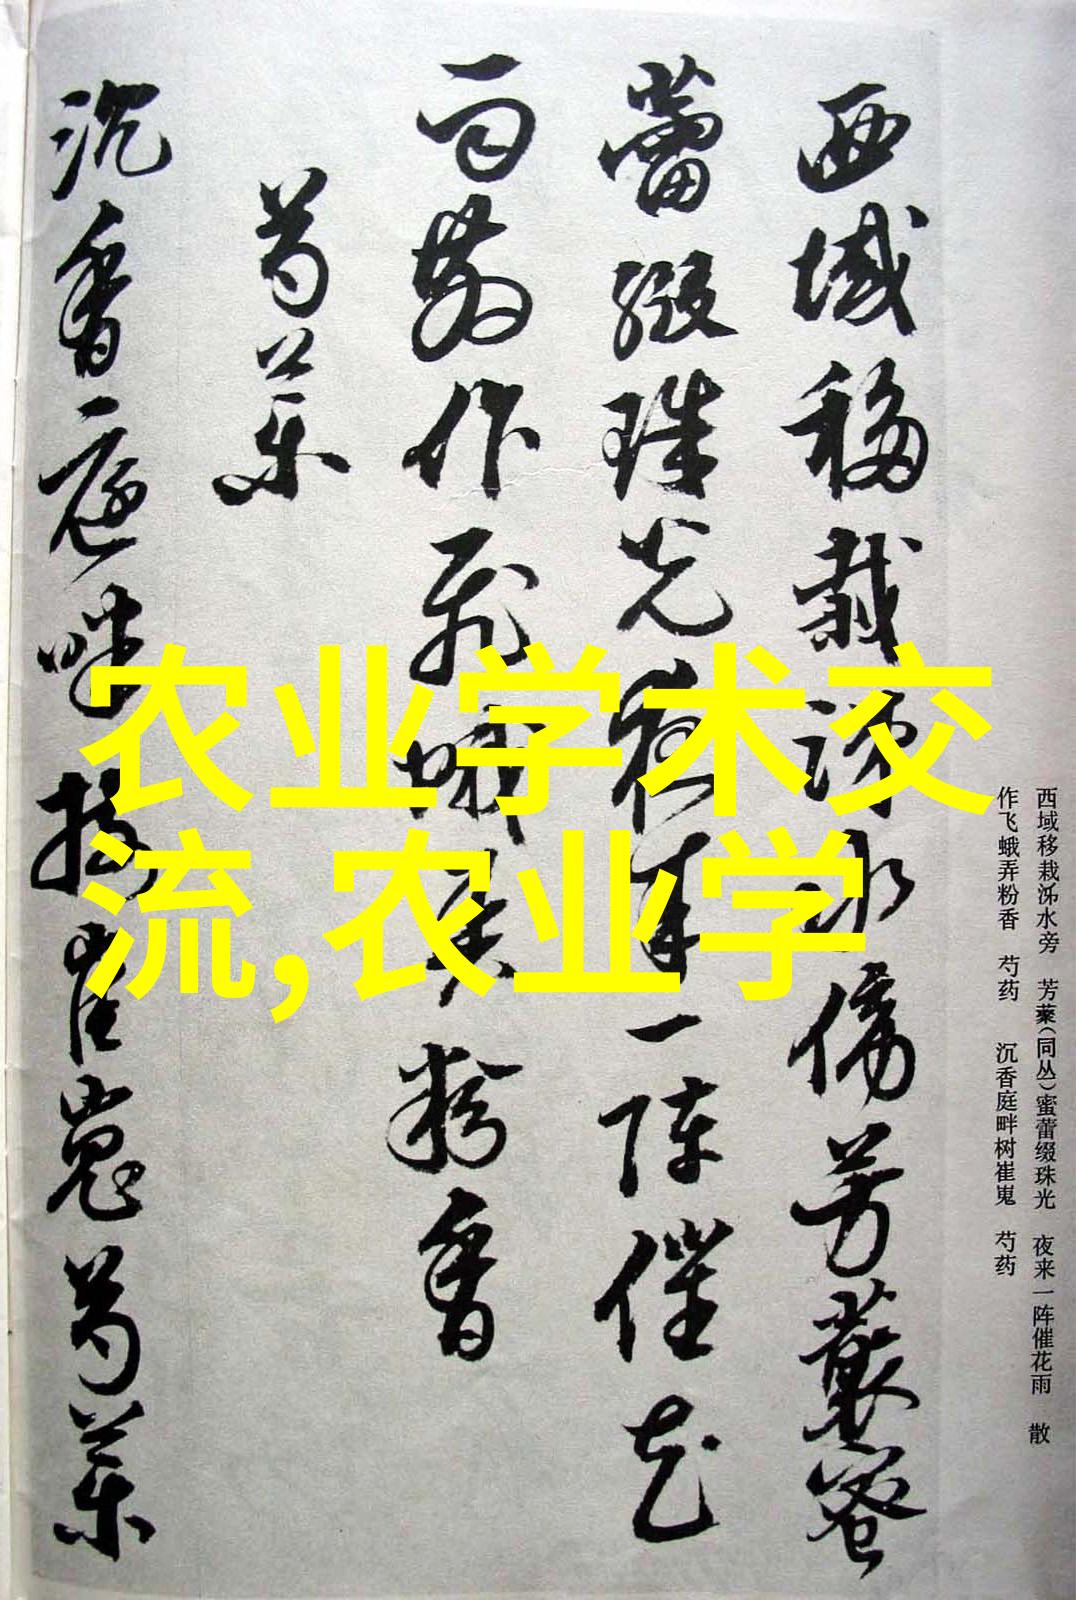 西域移栽泺水傍芳藂蜜
蕾缀珠光夜来一阵催花
雨散作飞蛾弄粉香
芍药
沉香庭畔树崔嵬芍药
农业学术交
流,农业学
西域移栽泺水旁 芳藂(同丛)蜜蕾缀珠光 夜来一阵催花雨 散
作飞蛾弄粉香 芍药 沉香庭畔树崔嵬 芍药